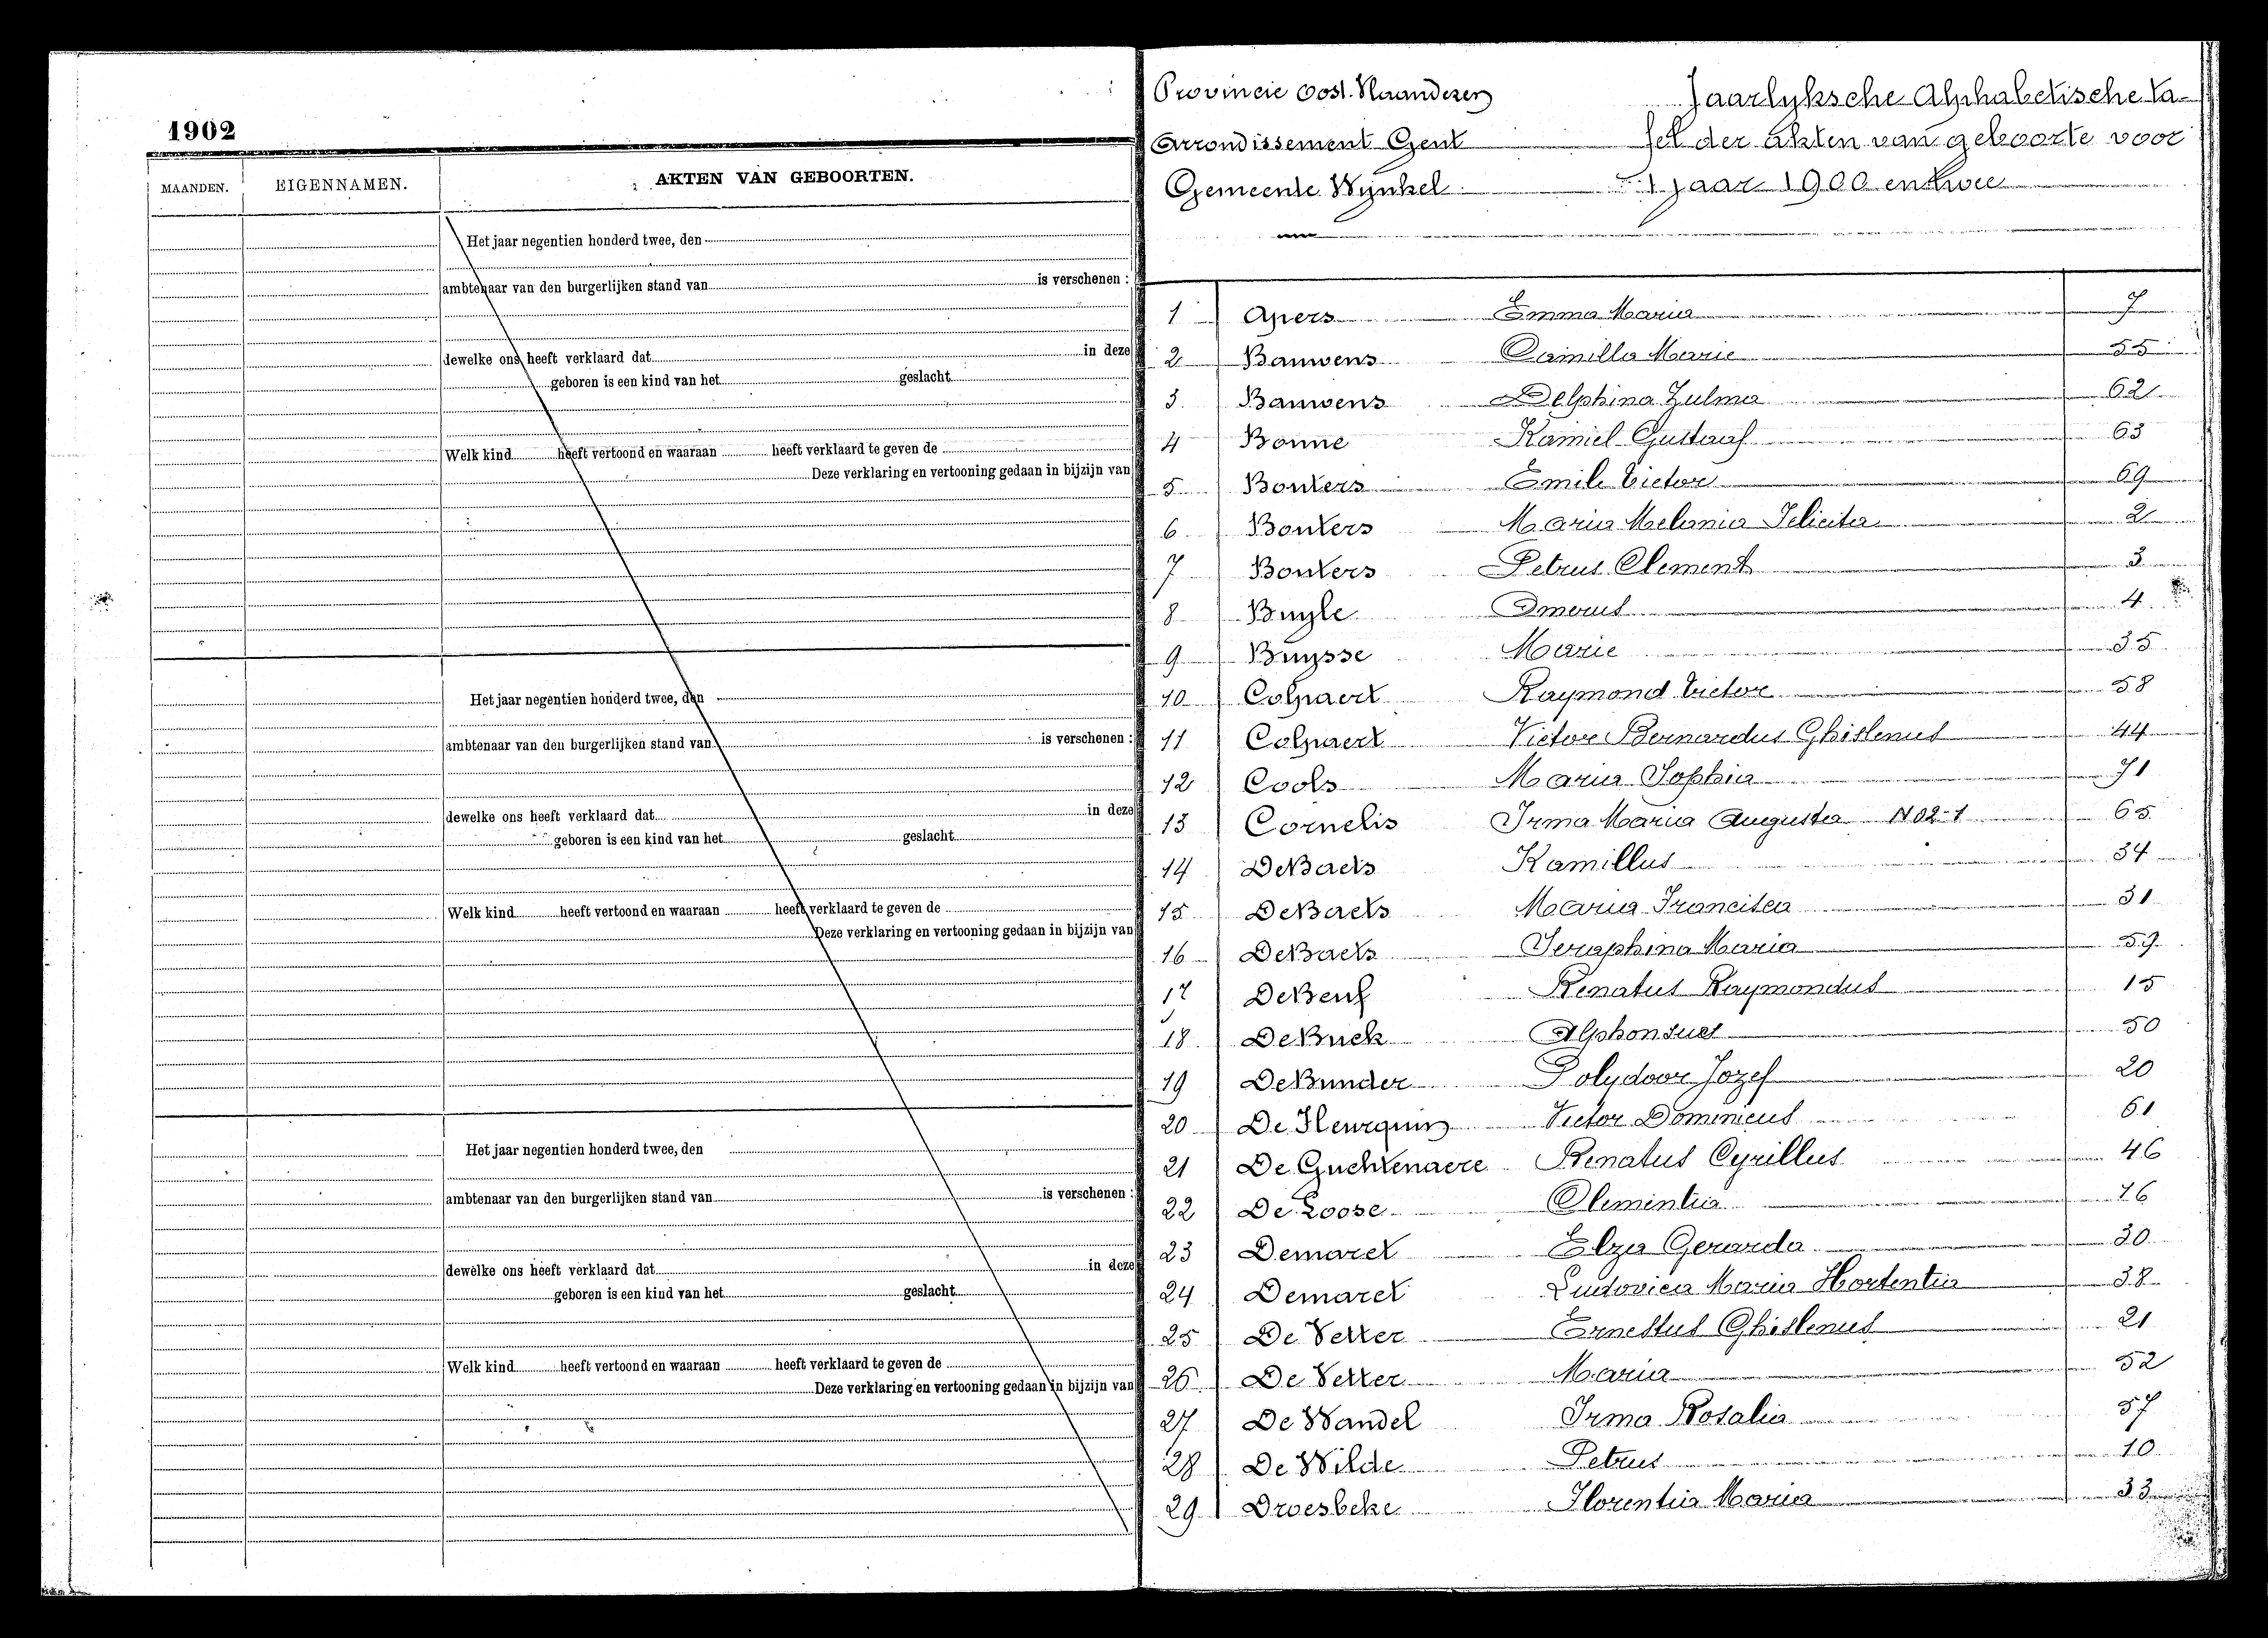 1902
MAANDEN. EIGENNAMEN. AKTEN VAN GEBOORTEN.
Het jaar negentien honderd twee, den
ambtenaar van den burgerlijken stand van is verschenen :
dewelke ons heeft verklaard dat in deze
geboren is een kind van het geslacht
Welk kind heeft vertoond en waaraan heeft verklaard te geven de
Deze verklaring en vertooning gedaan in bijzijn van
Het jaar negentien honderd twee, den
ambtenaar van den burgerlijken stand van is verschenen :
dewelke ons heeft verklaard dat in deze
geboren is een kind van het geslacht
Welk kind heeft vertoond en waaraan heeft verklaard te geven de
Deze verklaring en vertooning gedaan in bijzijn van
Het jaar negentien honderd twee, den
ambtenaar van den burgerlijken stand van is verschenen :
dewelke ons heeft verklaard dat in deze
geboren is een kind van het geslacht
Welk kind heeft vertoond en waaraan heeft verklaard te geven de
Deze verklaring en vertooning gedaan in bijzijn van
Provincie Oost-Vlaanderen Jaarlyksche Alphabetische ta-
Arrondissement Gent fel der akten van geboorte voor
Gemeente Wynkel 't jaar 1900 en twee
1 Apers Emma Maria 7
2 Bauwens Camilla Marie 55
3 Bauwens Delphina Zulma 62
4 Bonne Kamiel Gustaaf 63
5 Bonters Emile Victor 69
6 Bonters Maria Melania Felicita 2
7 Bonters Petrus Clement 3
8 Buyle Omerus 4
9 Buysse Marie 35
10 Colpaert Raymond Victor 58
11 Colpaert Victor Bernardus Ghislenus 44
12 Cools Maria Sophia 71
13 Cornelis Irma Maria Augusta N02-1 65
14 DeBaets Kamillus 34
15 DeBaets Maria Francisca 31
16 DeBaets Seraphina Maria 59
17 DeBeuf Renatus Raymondus 15
18 DeBuck Alphonsus 50
19 DeBunder Polydoor Jozef 20
20 De Fleurquin Victor Dominicus 61
21 De Guchtenaere Renatus Cyrillus 46
22 De Loose Clementia 16
23 Demaret Elza Gerarda 30
24 Demaret Ludovica Maria Hortentia 38
25 De Vetter Ernestus Ghislenus 21
26 De Vetter Maria 52
27 De Wandel Irma Rosalia 57
28 De Wilde Petrus 10
29 Droesbeke Florentia Maria 33